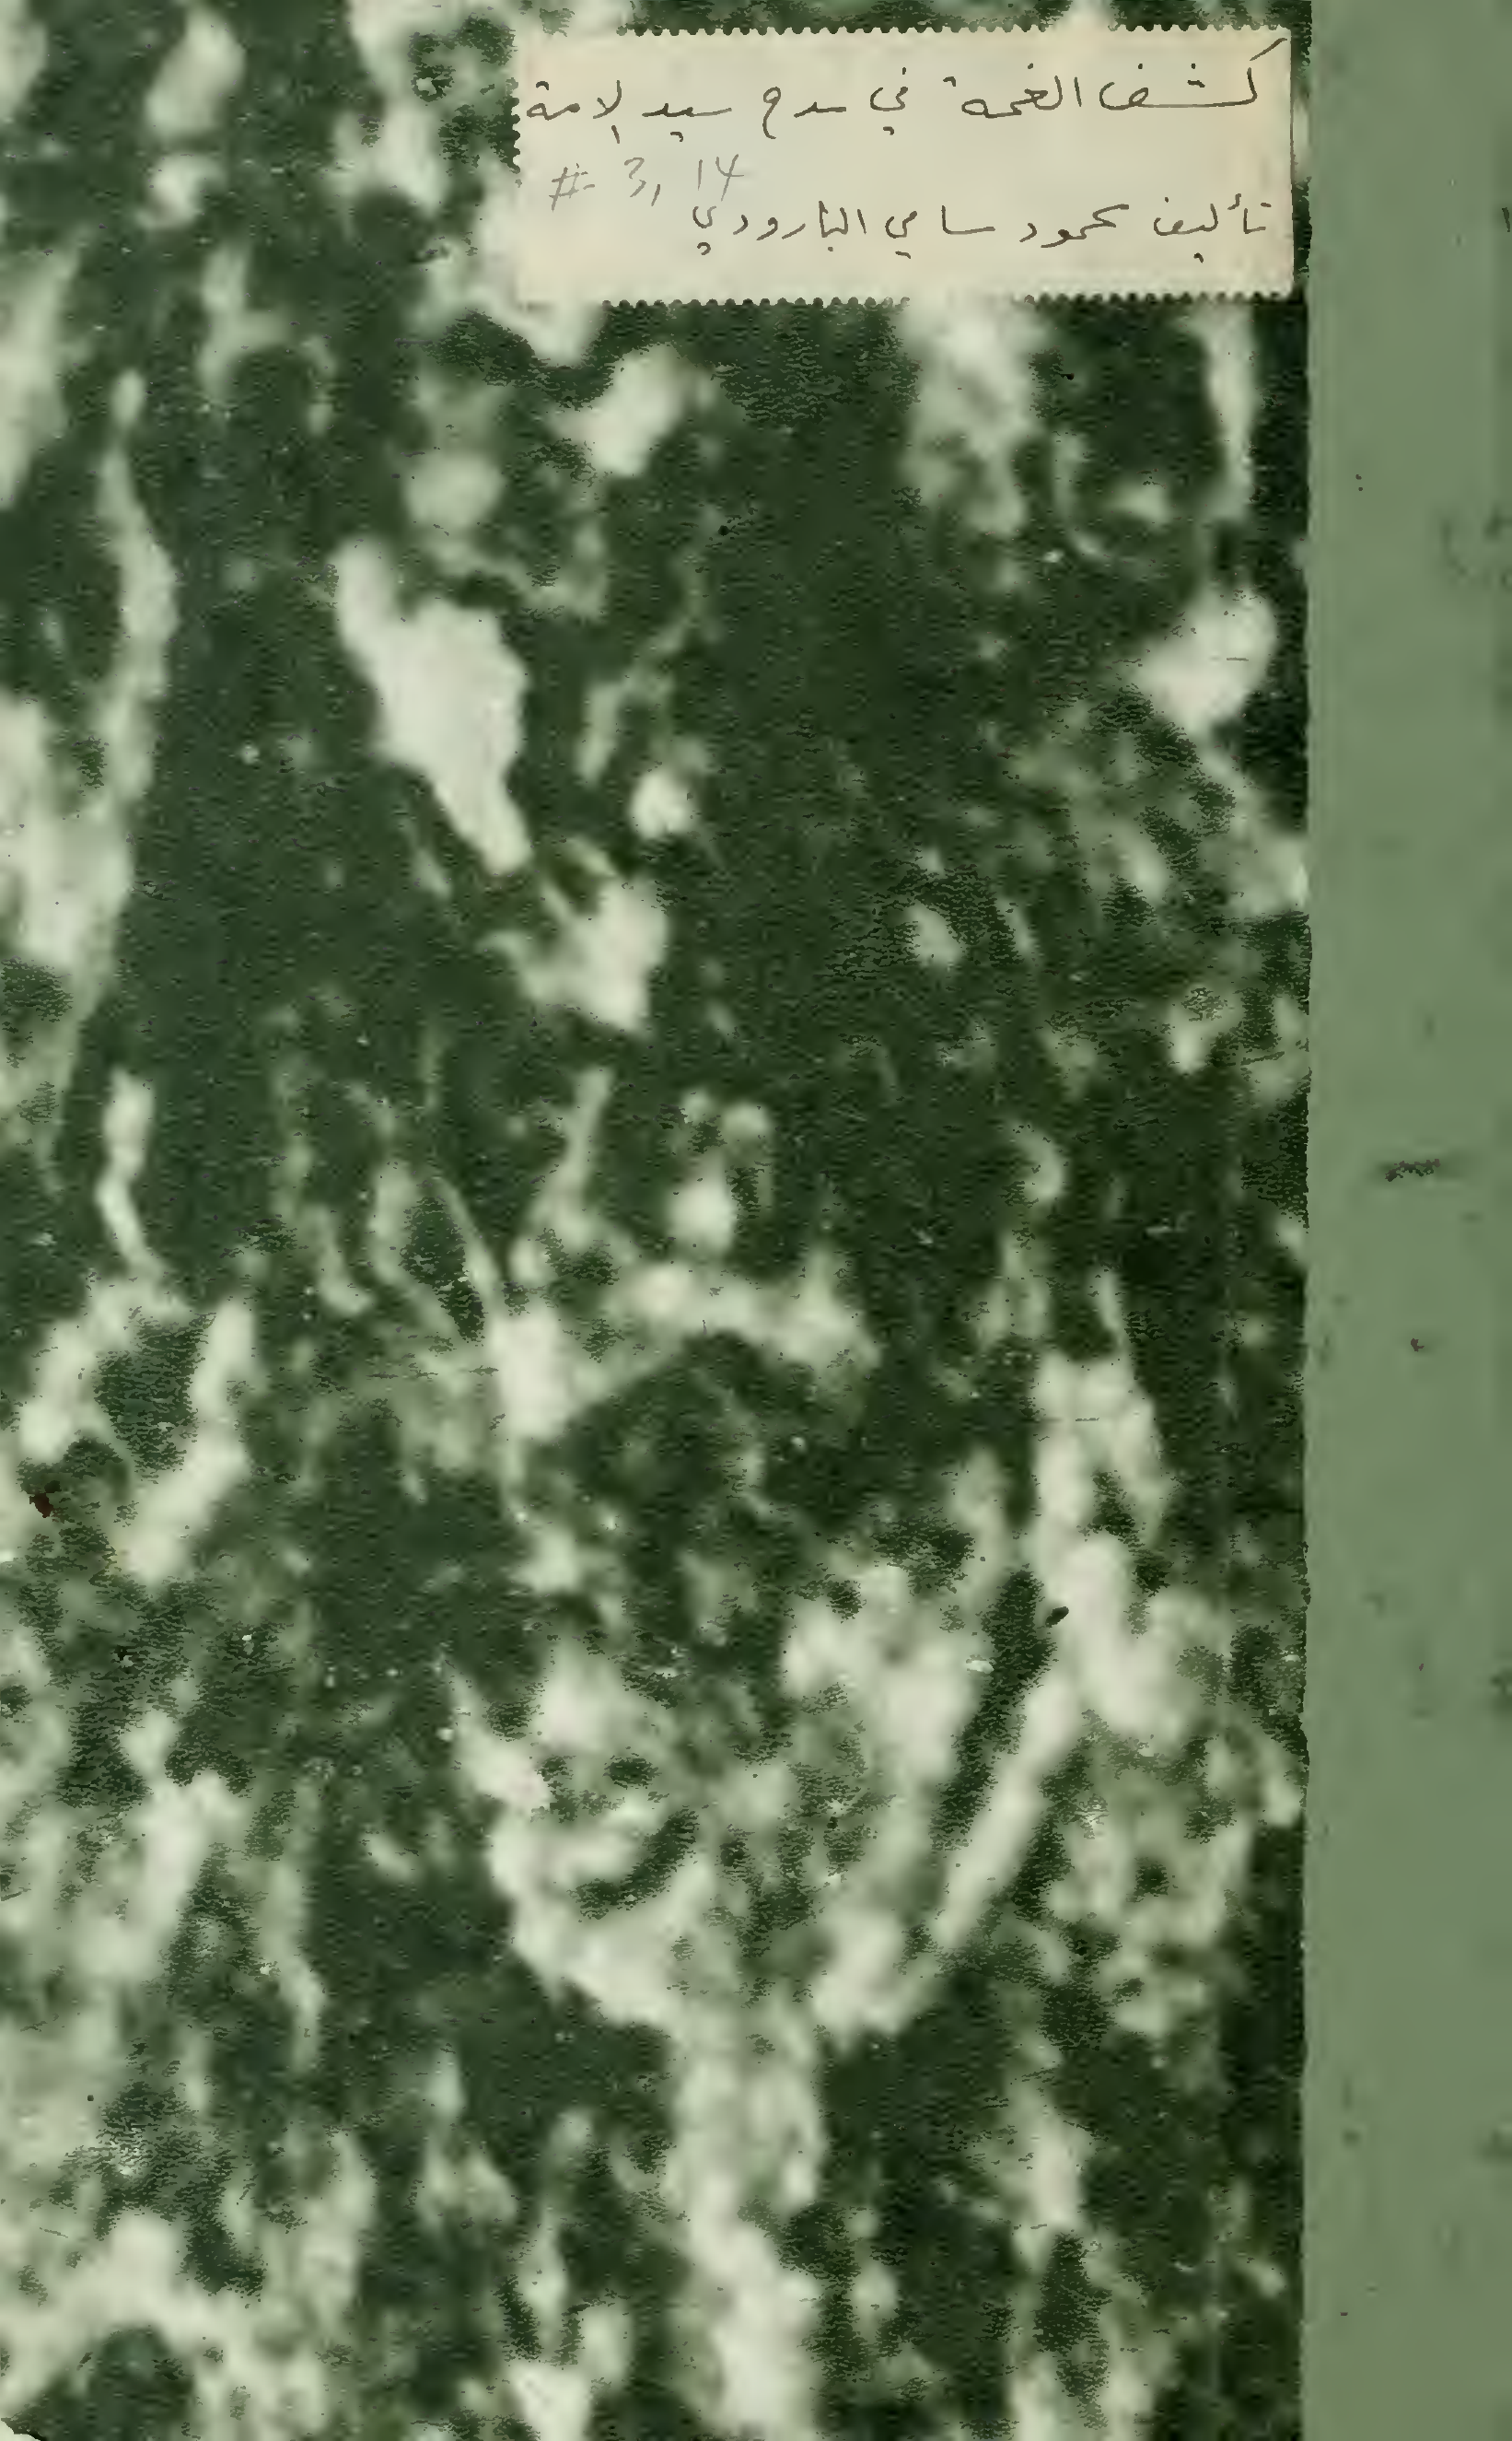 كشف الغمة في مدح سيد الامة
# 3, 14
تأليف محمود سامي البارودي